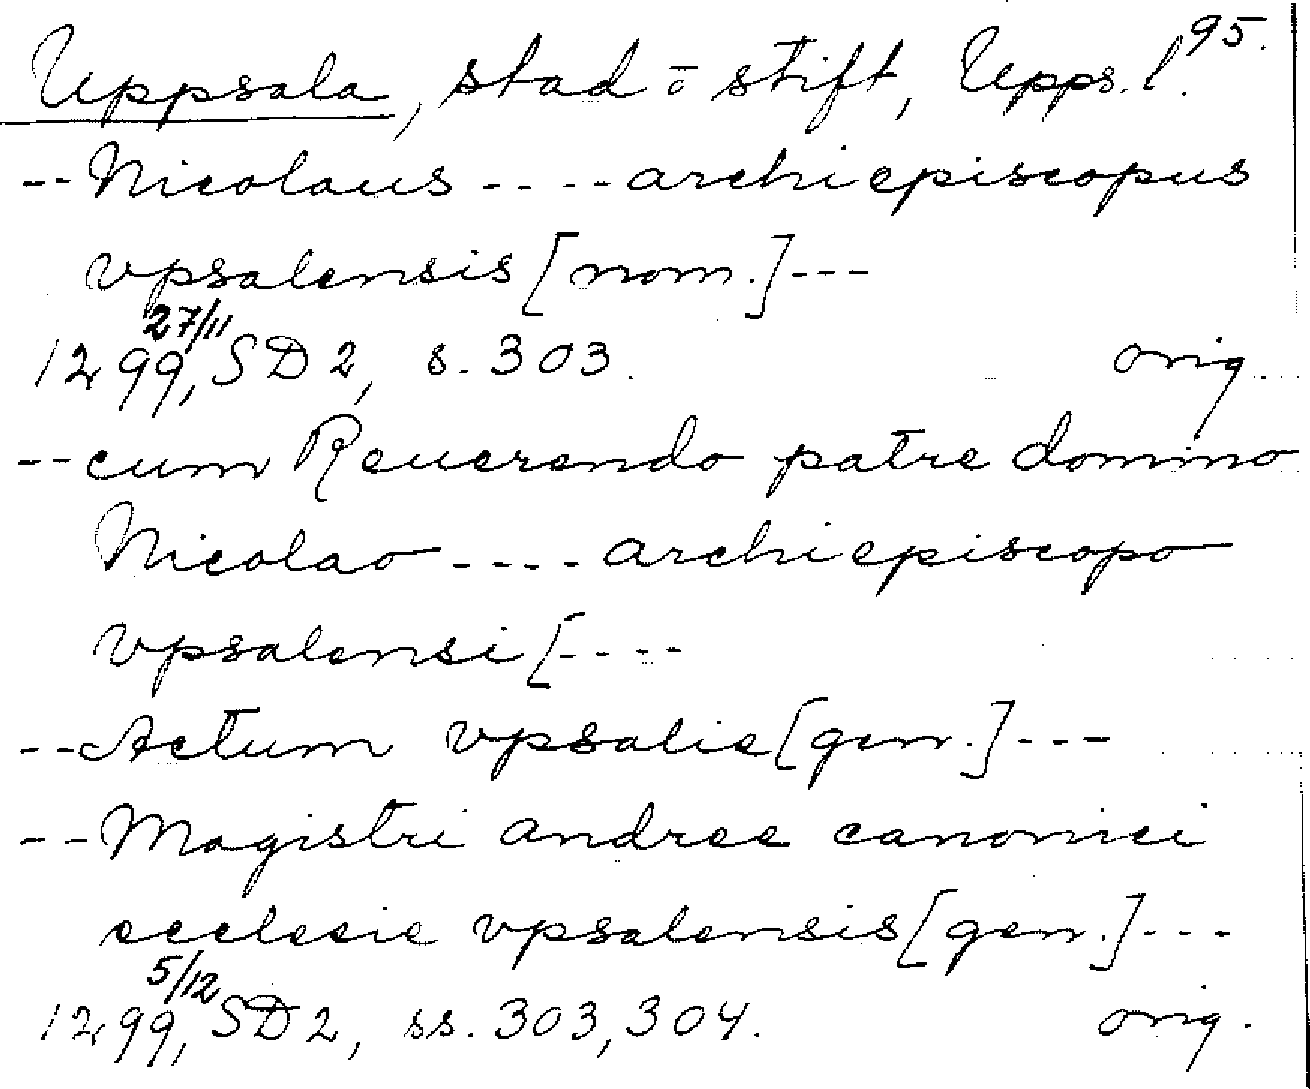 95.
Uppsala, stad o stift, Upps. l.
-- Nicolaus ---- archiepiscopus
vpsalensis [nom.] ---
27/11
1299, SD 2, s. 303. orig.
-- cum Reuerendo patre domino
Nicolao ---- archiepiscopo
vpsalensi [----
-- Actum vpsalie [gen.] ---
-- Magistri andree canonici
ecclesie vpsalensis [gen.] ---
5/12
1299, SD 2, ss. 303, 304. orig.